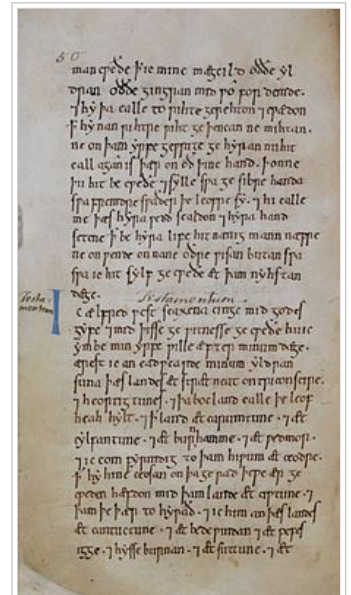 50
man cƿeðe ꝥ ic mine mægcild oððe yl
dran oððe gingran mid ƿo fordemde.
⁊ hy þa ealle to rihte gerehton ⁊ cƿædon
ꝥ hy nan rihtre riht geþencan ne mihtan.
ne on þam yrfe geƿrite gehyran nu hit
eall agan is þær on oð þine hand. þonne
þu hit becƿeðe ⁊ sylle sƿa gesibre handa
sƿa fremdre sƿaðer þe leofre sy. ⁊ hi ealle
me þæs hyra ƿedd sealdon ⁊ hyra hand
setene ꝥ be hyra life hit nænig mann næfre
ne onƿende on nane oðre ƿisan butan sƿa
sƿa ic hit sylf gecƿeðe æt þam nyhstan
dæge.
Testamentum
Testa-
mentum
Ic ælfred ƿest seaxena cinge mid godes
gyfe ⁊ mid þisse geƿitnesse gecƿeðe hu ic
ymbe min yrfe ƿille æfter minum dæge.
ærest ic an eadƿearde minum yldran
suna þæs landes æt strætneat on triconscire.
⁊ heortigtunes. ⁊ þa bocland ealle þe leof
heah hylt. ⁊ ꝥ land æt carumtune. ⁊ æt
cylfantune. ⁊ æt burnhamme. ⁊ æt ƿedmor.
⁊ ic eom fyrmdig to þam hiƿum æt ceodre.
ꝥ hy hine ceosan on þa gerad þe ƿe ær ge
cƿeden hæfdon mid þam lande æt ciƿtune. ⁊
þam þe þær to hyrað. ⁊ ic him an þæs landes
æt cantuctune. ⁊ æt bedeƿindan ⁊ æt pefes
igge. ⁊ hysseburnan. ⁊ æt suttune. ⁊ æt